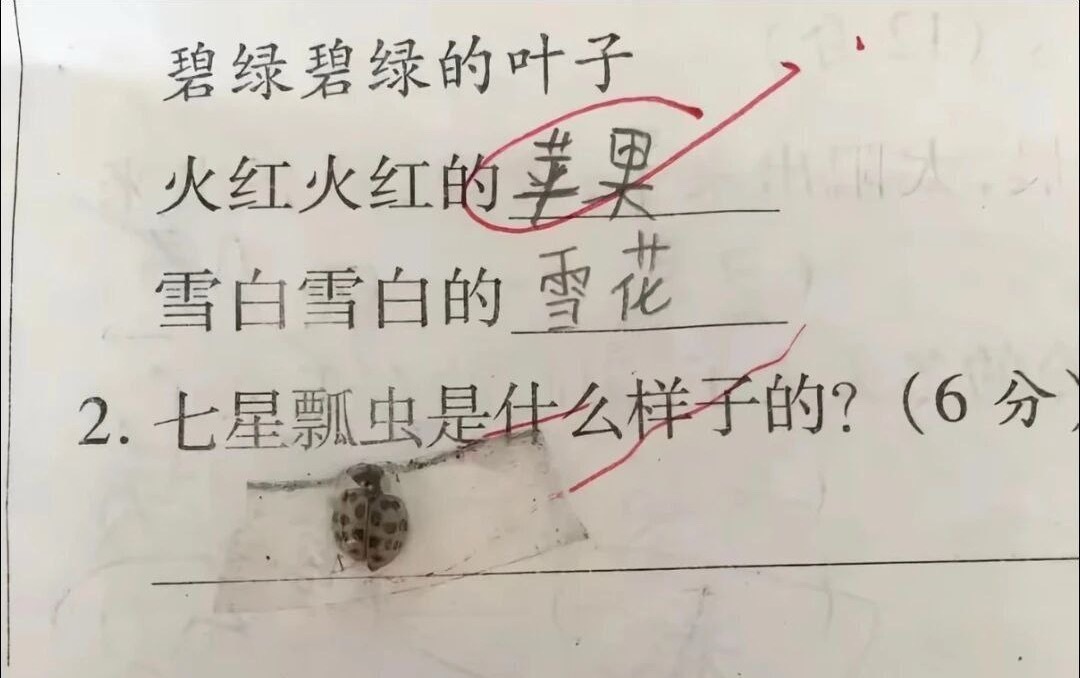 碧绿碧绿的叶子
火红火红的苹果
雪白雪白的雪花
2. 七星瓢虫是什么样子的？（6 分）